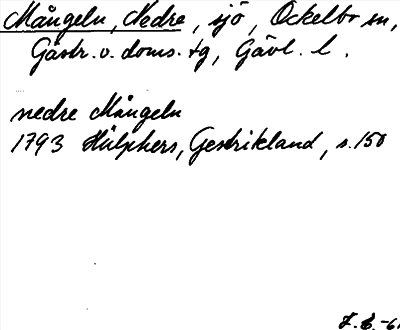 Mången, Nedre, sjö, Ockelbo sn,
Gästr. v. doms. tg, Gävl. l.
nedre Mången
1793 Hülphers, Gestrikland, s. 150